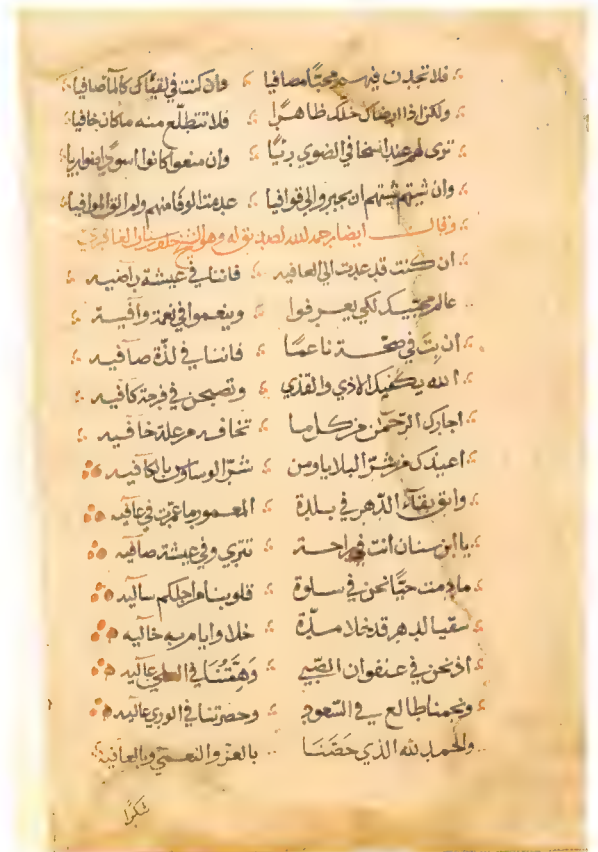 فلا تجدن فيهم محبًّا مصافيا وان كنت في لقياك كالماء صافيا
ولكن اذا ارضاك خلك ظاهرًا فلا تتطلّع منه ما كان خافيا
ترى لهم عند في الضوي وان منعوا كانوا اسودًا
وان شيتهم شيتهم ان يجبروا لي قوافيا عدمت الوفا منهم ولم الق الموافيا
وقال ايضا رحمه الله لصديق له وهو
ان كنت قد عدت الى العافيه فاننا في عيشة راضيه
عالم محبيك لكي يعرفوا وينعموا في نعمة وافية
ان بتَ في صحّة ناعمًا فاننا في لذّة صافيه
الله يكفيك الاذي والقذي وتصبحن في فرحة كافيه
اجارك الرّحمٰن من كل ما تخافه من علّة خافيه
اعيذك من شرّ البلايا ومن شرّ الوساوس بالكافيه
وابق بقآء الدّهر في بلدة المعمور ما عمّرت في عافيه
يا ابن سنان انت في راحة تتري وفي عيشة صافيه
ما دمت حيًّا نحن في سلوة قلوبنا من اجلكم ساليه
سقيا لدهر قد خلا مدّة خلا وايام به خاليه
اذ نحن في عنفوان الصّبي وَهِمَّتُنَا في العلى عاليه
ونجمنا طالع في السّعود وحضرتنا في الوري عاليه
والحمد لله الذي خَصَّنَا بالعزّ والنعمى وبالعافية
شكرًا